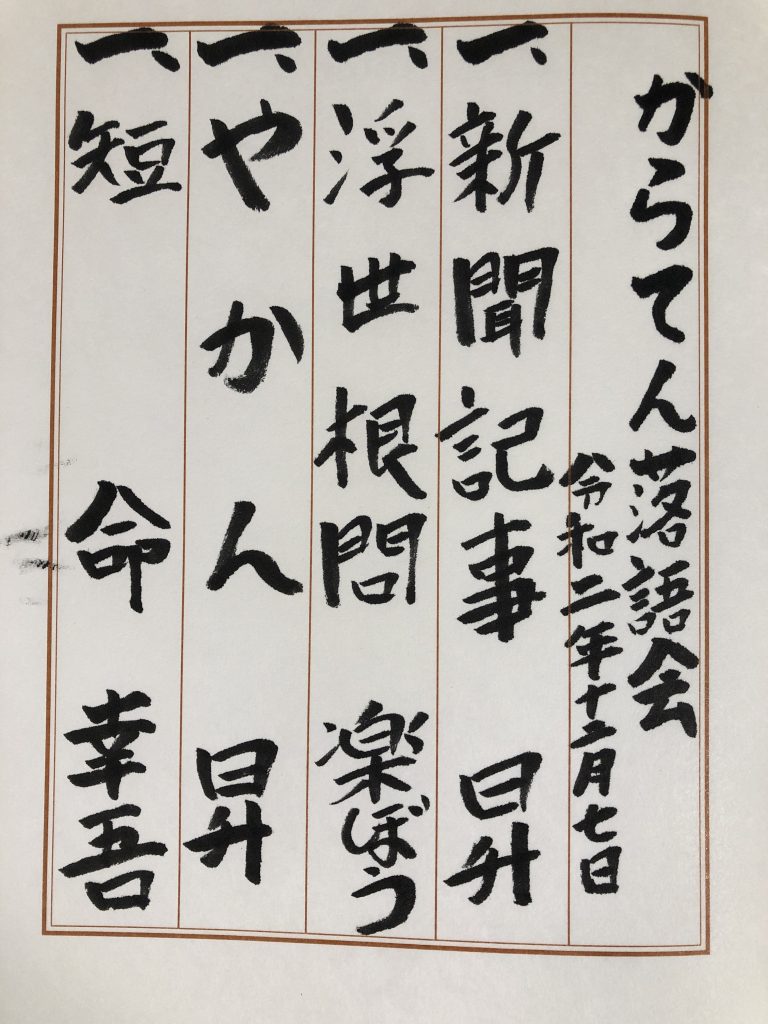 がらてん落語会
令和二年十二月七日
一、新聞記事 昇
一、浮世根問 楽ぼう
一、やかん 昇
一、短命 幸吾